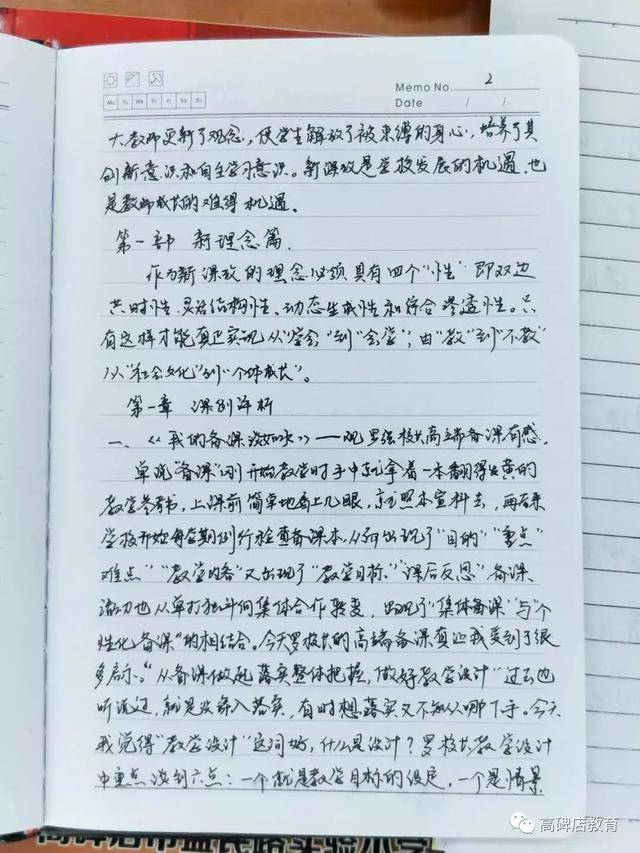 Memo No. 2
Mo Tu We Th Fr Sa Su
Date / /
大教师更新了观念，使学生解放了被束缚的身心，培养了其
创新意识和自主学习意识。新课改是学校发展的机遇，也
是教师成长的难得机遇。
第一部 新理念篇.
作为新课改的理念必须具有四个“性”即双边
共时性、灵活结构性、动态生成性和综合渗透性。只
有这样才能真正实现从“学会”到“会学”；由“教”到“不教”
从“社会文化”到“个体成长”。
第一章 课例评析
一、《我的备课 》——观罗强校长高端备课有感.
单说“备课”刚开始教学时手中就拿着一本翻得发黄的
教学参考书，上课前简单地看上几眼，就照本宣科去，再后来
学校开始每学期例行检查备课本，从而出现了“目的”“重点”
难点”“教学内容”又出现了“教学目标”“课后反思”备课
活动也从单打独斗向集体合作转变，出现了“集体备课”与“个
性化备课”的相结合。今天罗校长的高端备课真让我受到了很
多启示。“从备课做起落实整体把握，做好教学设计”过去也
听说过，就是没深入落实，有时想落实又不知从哪下手。今天
我觉得“教学设计”这词好，什么是设计？罗校长教学设计
中重点谈到六点：一个就是教学目标的设定，一个是情景
高碑店教育
高碑店市 实验小学